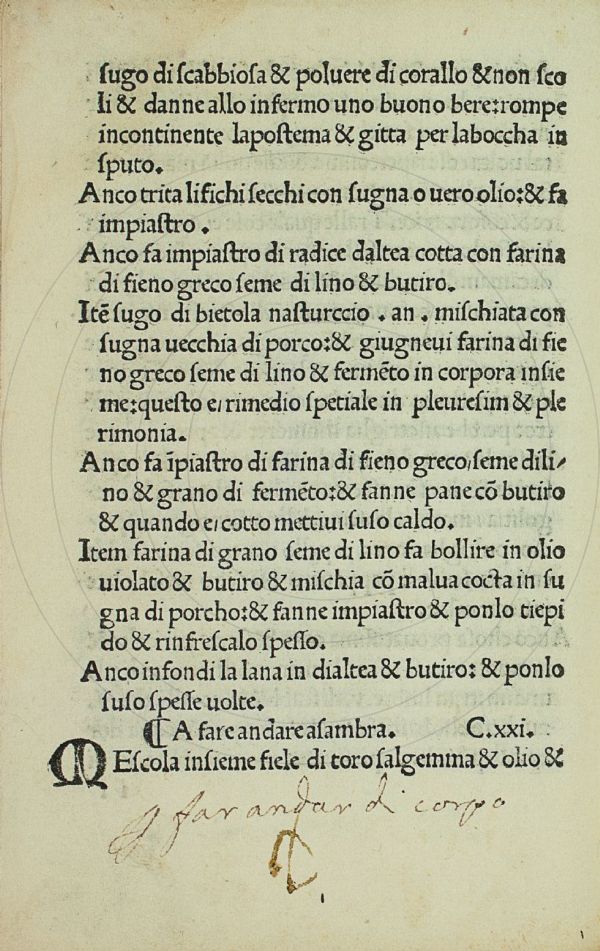 ſugo di ſcabbioſa & poluere di corallo & non ſco
li & danne allo infermo uno buono bere:rompe
incontinente lapoſtema & gitta per laboccha in
ſputo.
Anco trita li fichi ſecchi con ſugna o uero olio:& fa
impiaſtro .
Anco fa impiaſtro di radice daltea cotta con farina
di fieno greco ſeme di lino & butiro.
Itē ſugo di bietola naſturccio . an . miſchiata con
ſugna uecchia di porco:& giugneui farina di fie
no greco ſeme di lino & fermēto in corpora inſie
me:queſto e/ rimedio ſpetiale in pleureſim & ple
rimonia.
Anco fa īpiaſtro di farina di fieno greco/ſeme dili/
no & grano di fermēto:& fanne pane cō butiro
& quando e/ cotto mettiui ſuſo caldo.
Item farina di grano ſeme di lino fa bollire in olio
uiolato & butiro & miſchia cō malua cocta in ſu
gna di porcho:& fanne impiaſtro & ponlo tiepi
do & rinfreſcalo ſpeſſo.
Anco infondi la lana in dialtea & butiro: & ponlo
ſuſo ſpeſſe uolte.
¶ A fare andare aſambra. C.xxi.
MEſcola inſieme fiele di toro ſalgemma & olio &
far andar di corpo